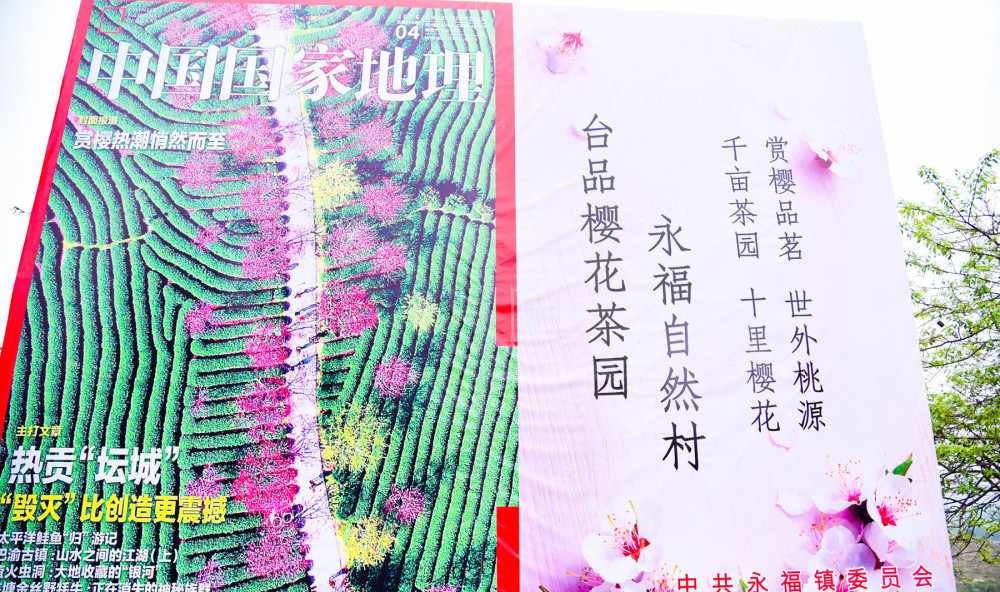 04
中国国家地理
封面报道
赏樱热潮悄然而至
主打文章
热贡“坛城”
“毁灭”比创造更震撼
太平洋鲑鱼“归”游记
巴渝古镇:山水之间的江湖(上)
萤火虫洞:大地收藏的“银河”
赏樱品茗 世外桃源
千亩茶园 十里樱花
永福自然村
台品樱花茶园
中共永福镇委员会